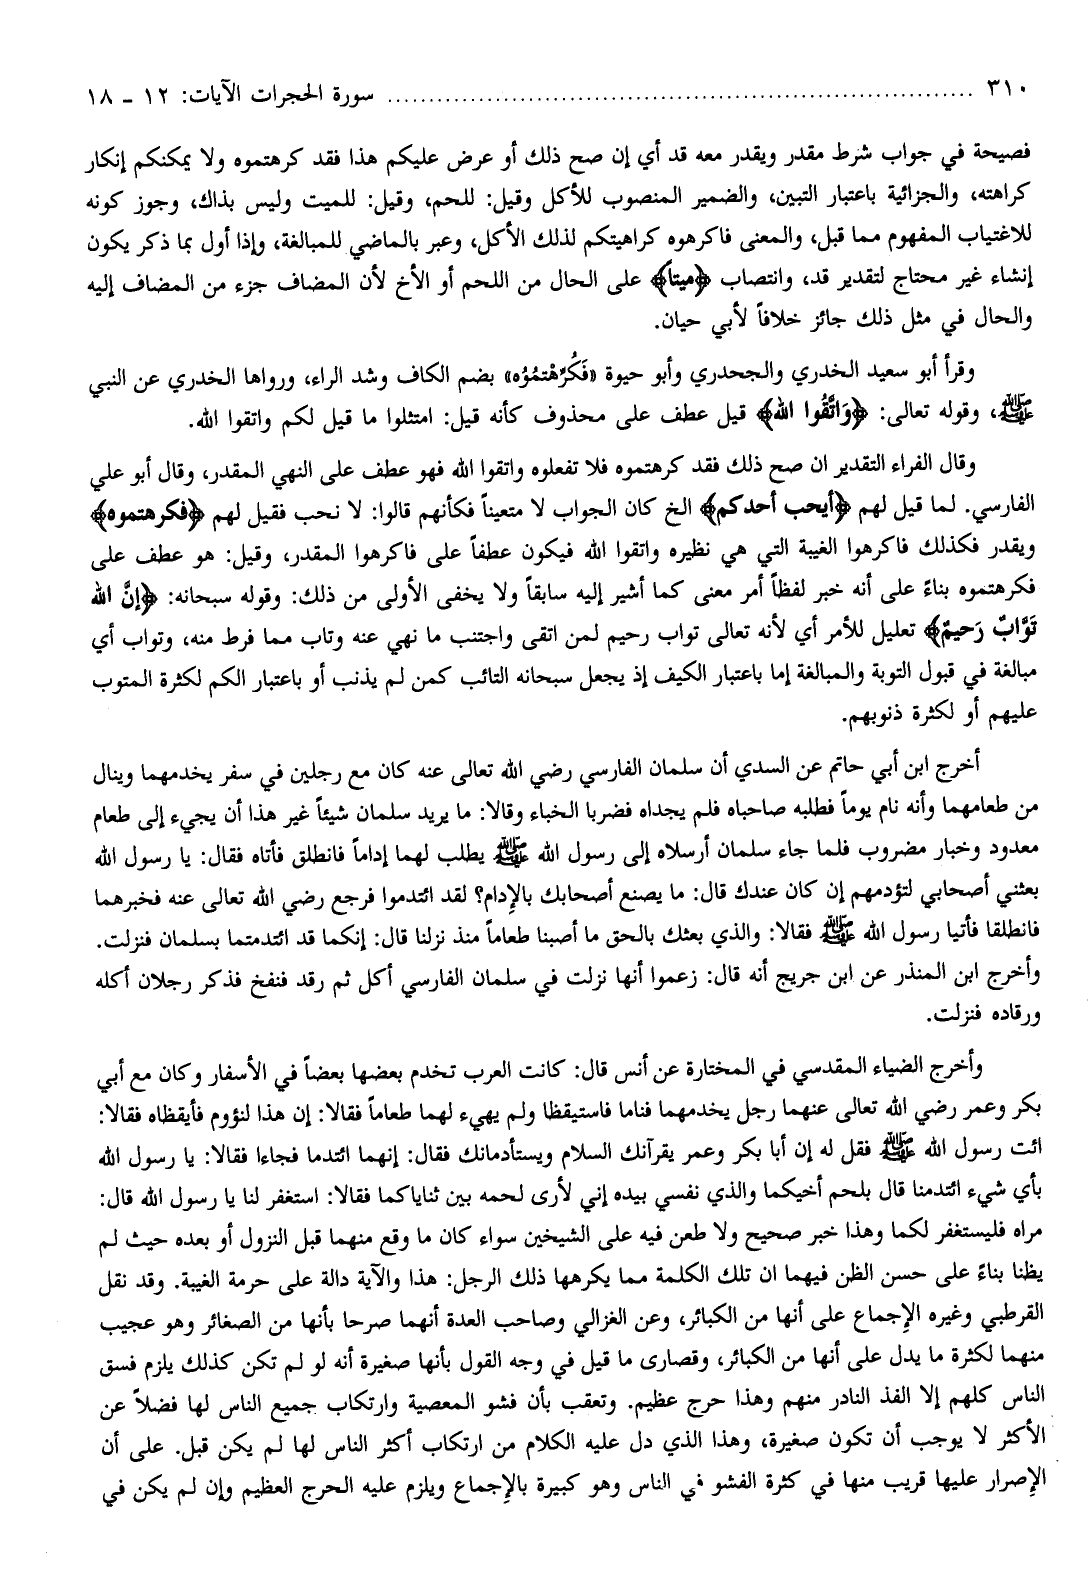 ٣١٠ ........................................................................ سورة الحجرات الآيات: ١٢ - ١٨
فصيحة في جواب شرط مقدر ويقدر معه قد أي إن صح ذلك أو عرض عليكم هذا فقد كرهتموه ولا يمكنكم إنكار
كراهته، والجزائية باعتبار التبين، والضمير المنصوب للأكل وقيل: للحم، وقيل: للميت وليس بذاك، وجوز كونه
للاغتياب المفهوم مما قبل، والمعنى فاكرهوه كراهيتكم لذلك الأكل، وعبر بالماضي للمبالغة، وإذا أول بما ذكر يكون
إنشاء غير محتاج لتقدير قد، وانتصاب ﴿ميتاً﴾ على الحال من اللحم أو الأخ لأن المضاف جزء من المضاف إليه
والحال في مثل ذلك جائز خلافاً لأبي حيان.
وقرأ أبو سعيد الخدري والجحدري وأبو حيوة «فَكُرِّهْتمُوُه» بضم الكاف وشد الراء، ورواها الخدري عن النبي
ﷺ، وقوله تعالى: ﴿وَاتَّقُوا الله﴾ قيل عطف على محذوف كأنه قيل: امتثلوا ما قيل لكم واتقوا الله.
وقال الفراء التقدير ان صح ذلك فقد كرهتموه فلا تفعلوه واتقوا الله فهو عطف على النهي المقدر، وقال أبو علي
الفارسي. لما قيل لهم ﴿أيحب أحدكم﴾ الخ كان الجواب لا متعيناً فكأنهم قالوا: لا نحب فقيل لهم ﴿فكرهتموه﴾
ويقدر فكذلك فاكرهوا الغيبة التي هي نظيره واتقوا الله فيكون عطفاً على فاكرهوا المقدر، وقيل: هو عطف على
فكرهتموه بناءً على أنه خبر لفظاً أمر معنى كما أشير إليه سابقاً ولا يخفى الأولى من ذلك: وقوله سبحانه: ﴿إنَّ الله
تَوَّابٌ رَحيمٌ﴾ تعليل للأمر أي لأنه تعالى تواب رحيم لمن اتقى واجتنب ما نهي عنه وتاب مما فرط منه، وتواب أي
مبالغة في قبول التوبة والمبالغة إما باعتبار الكيف إذ يجعل سبحانه التائب كمن لم يذنب أو باعتبار الكم لكثرة المتوب
عليهم أو لكثرة ذنوبهم.
أخرج ابن أبي حاتم عن السدي أن سلمان الفارسي رضي الله تعالى عنه كان مع رجلين في سفر يخدمهما وينال
من طعامهما وأنه نام يوماً فطلبه صاحباه فلم يجداه فضربا الخباء وقالا: ما يريد سلمان شيئاً غير هذا أن يجيء إلى طعام
معدود وخبار مضروب فلما جاء سلمان أرسلاه إلى رسول الله ﷺ يطلب لهما إداماً فانطلق فأتاه فقال: يا رسول الله
بعثني أصحابي لتؤدمهم إن كان عندك قال: ما يصنع أصحابك بالإدام؟ لقد ائتدموا فرجع رضي الله تعالى عنه فخبرهما
فانطلقا فأتيا رسول الله ﷺ فقالا: والذي بعثك بالحق ما أصبنا طعاماً منذ نزلنا قال: إنكما قد ائتدمتما بسلمان فنزلت.
وأخرج ابن المنذر عن ابن جريج أنه قال: زعموا أنها نزلت في سلمان الفارسي أكل ثم رقد فنفخ فذكر رجلان أكله
ورقاده فنزلت.
وأخرج الضياء المقدسي في المختارة عن أنس قال: كانت العرب تخدم بعضها بعضاً في الأسفار وكان مع أبي
بكر وعمر رضي الله تعالى عنهما رجل يخدمهما فناما فاستيقظا ولم يهيء لهما طعاماً فقالا: إن هذا لنؤوم فأيقظاه فقالا:
ائت رسول الله ﷺ فقل له إن أبا بكر وعمر يقرآنك السلام ويستأدمانك فقال: إنهما ائتدما فجاءا فقالا: يا رسول الله
بأي شيء ائتدمنا قال بلحم أخيكما والذي نفسي بيده إني لأرى لحمه بين ثناياكما فقالا: استغفر لنا يا رسول الله قال:
مراه فليستغفر لكما وهذا خبر صحيح ولا طعن فيه على الشيخين سواء كان ما وقع منهما قبل النزول أو بعده حيث لم
يظنا بناءً على حسن الظن فيهما ان تلك الكلمة مما يكرهها ذلك الرجل: هذا والآية دالة على حرمة الغيبة. وقد نقل
القرطبي وغيره الإجماع على أنها من الكبائر، وعن الغزالي وصاحب العدة أنهما صرحا بأنها من الصغائر وهو عجيب
منهما لكثرة ما يدل على أنها من الكبائر، وقصارى ما قيل في وجه القول بأنها صغيرة أنه لو لم تكن كذلك يلزم فسق
الناس كلهم إلا الفذ النادر منهم وهذا حرج عظيم. وتعقب بأن فشو المعصية وارتكاب جميع الناس لها فضلاً عن
الأكثر لا يوجب أن تكون صغيرة، وهذا الذي دل عليه الكلام من ارتكاب أكثر الناس لها لم يكن قبل. على أن
الإصرار عليها قريب منها في كثرة الفشو في الناس وهو كبيرة بالإجماع ويلزم عليه الحرج العظيم وإن لم يكن في